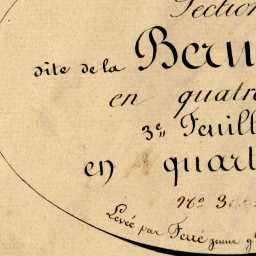 Section
dite de la Beru
en quatre
3e. Feuill
en quart
Levée par Ferré jeune g